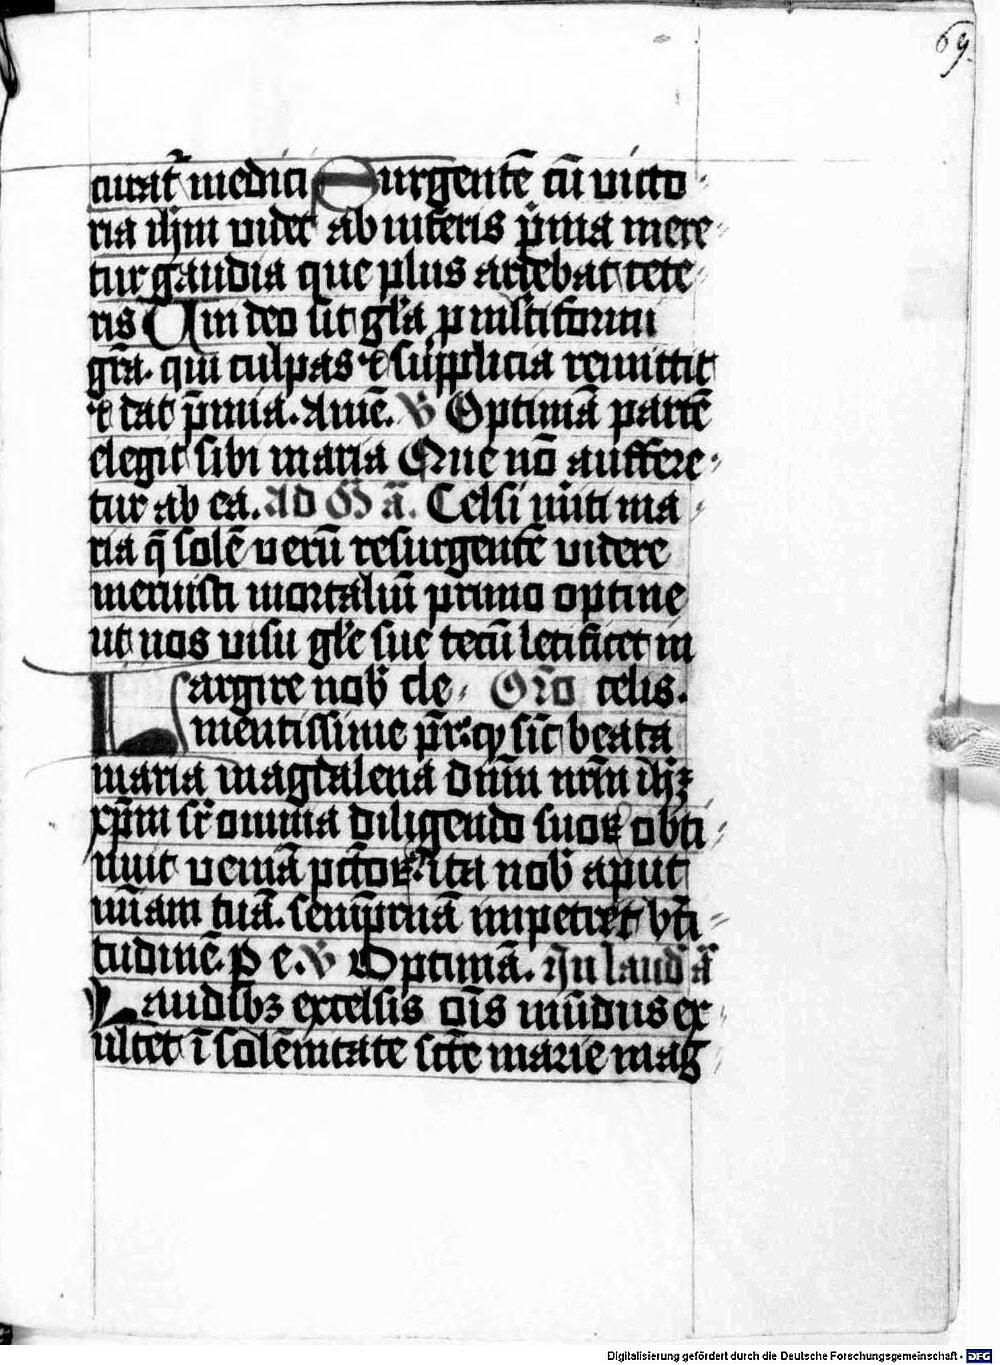 69.
curat᷑ medici Surgentē cū victo
ria ihm videt ab inferis p̄ma mere
tur gaudia que plus ardebat cete
ris Uni deo sit gl̄a p multiformi
gr̄a. qui culpas ⁊ supplicia remittit
⁊ dat p̄mia. Amē. V Optimā partē
elegit sibi maria Que nō auffere
tur ab ea. Ad M ā. Celsi m̄iti ma
ria q̄ solē verū resurgentē videre
meruisti mortaliū primo optine
ut nos visu gl̄e sue tecū letificet in
Largire nob̄ cle Or̄o celis.
mentissime pr̄. qͥ sic̄ beata
maria magdalena dn̄m nr̄m ihꝫ
xp̄m sr̄ omnia diligendo suoꝝ obti
nuit veniā pct̄oꝝ. ita nob̄ aput
m̄iam tuā. sempit̄nā impetret bt̄i
tudinē. p e. V Optimā. In laud̄ ā
Laudibꝫ excelsis oīs mūdus ex
ultet ī solēnitate sct̄e marie mag
Digitalisierung gefördert durch die Deutsche Forschungsgemeinschaft - DFG